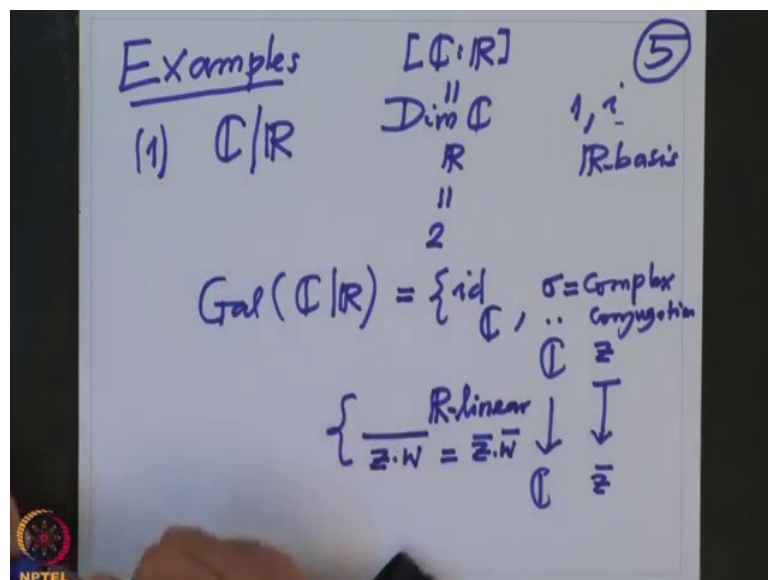 Examples [ℂ:ℝ] ⑤
(1) ℂ/ℝ
"
Dim ℂ 1, i
ℝ ℝ-basis
"
2
Gal(ℂ|ℝ) = {id_ℂ, σ = Complex
Conjugation
ℂ z
{ ℝ-linear ↓ ↧
\overline{z·w} = z̄·w̄
ℂ z̄
NPTEL